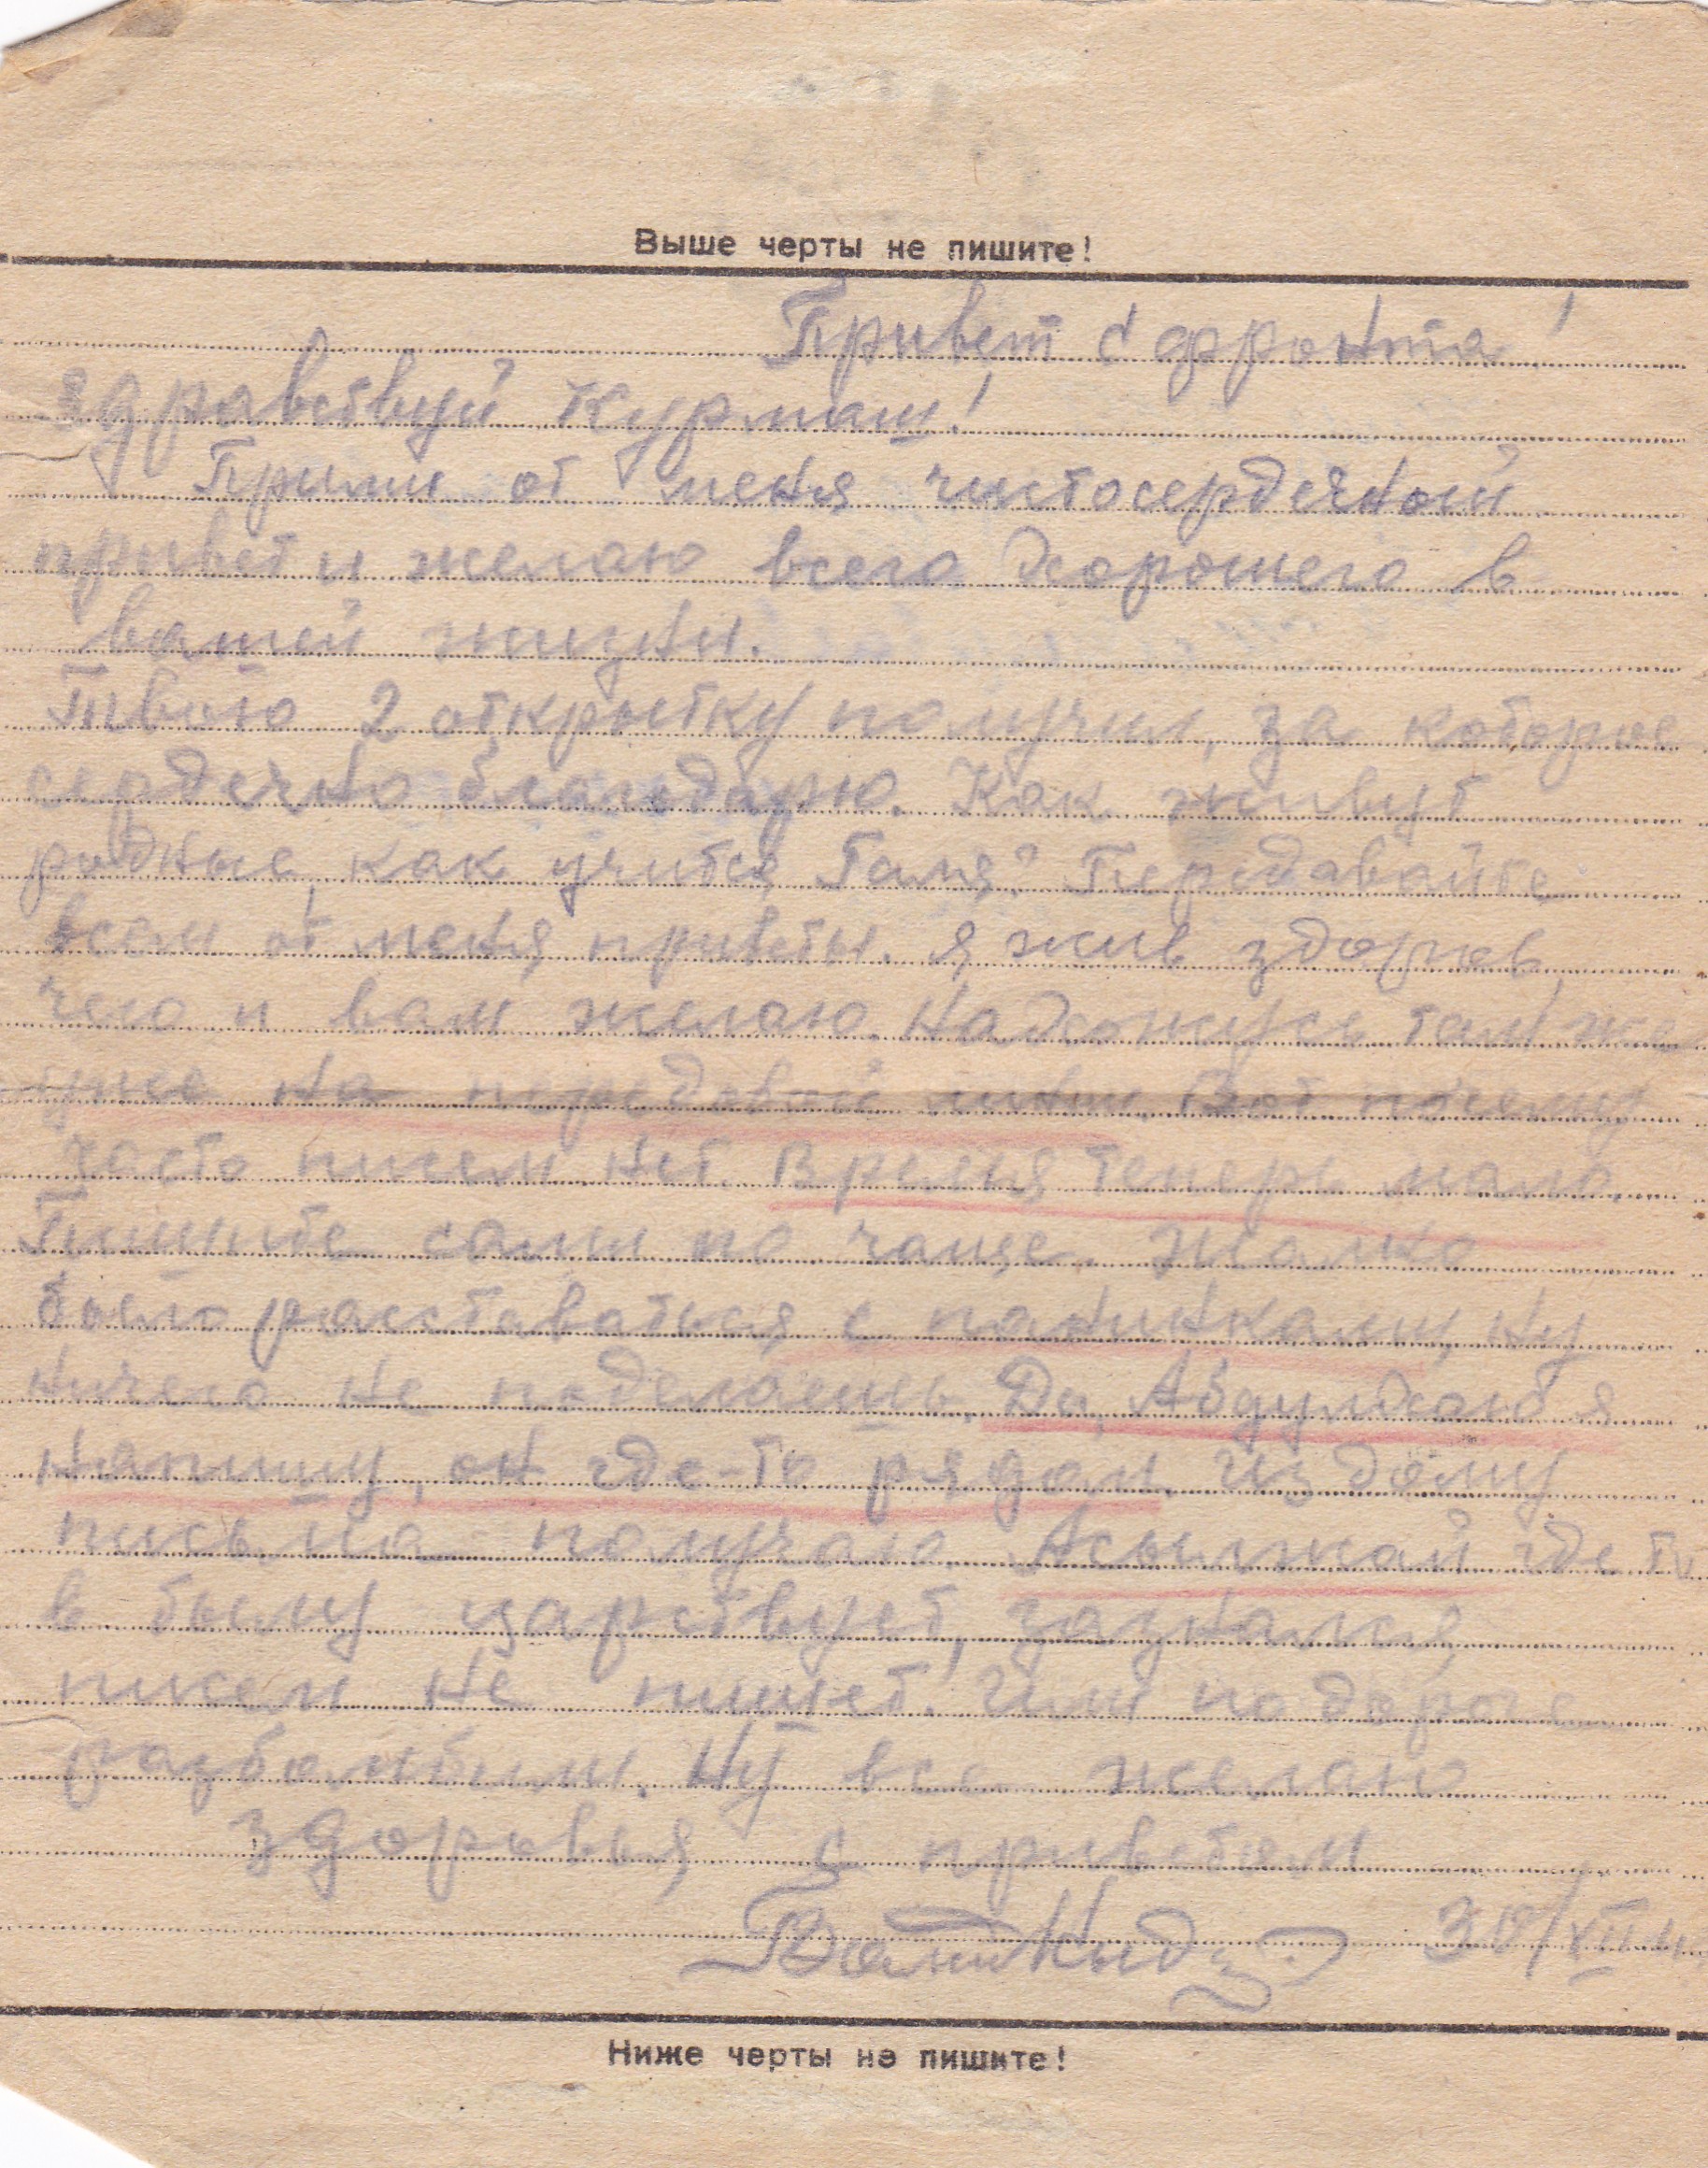 Выше черты не пишите!
Привет с фронта!
Здравствуй Курмаш!
Прими от меня чистосердечный
привет и желаю всего хорошего в
вашей жизни.
Твою 2 открытку получил, за которое
сердечно благодарю. Как живут
родные, как учится Галя? Передавайте
всем от меня приветы. Я жив здоров
чего и вам желаю. Нахожусь там же
уже на передовой линии. Вот почему
часто писем нет. Время теперь мало.
Пишите сами по чаще. Жалко
было расставаться с, ну
ничего не поделаешь. Да, я
напишу, он где-то рядом. Из дому
письма получаю. Асылжай где то
в тылу царствует, зазнался
писем не пишет. Или по дороге
разбомбили. Ну все желаю
здоровья с приветом
30/XII
Ниже черты не пишите!